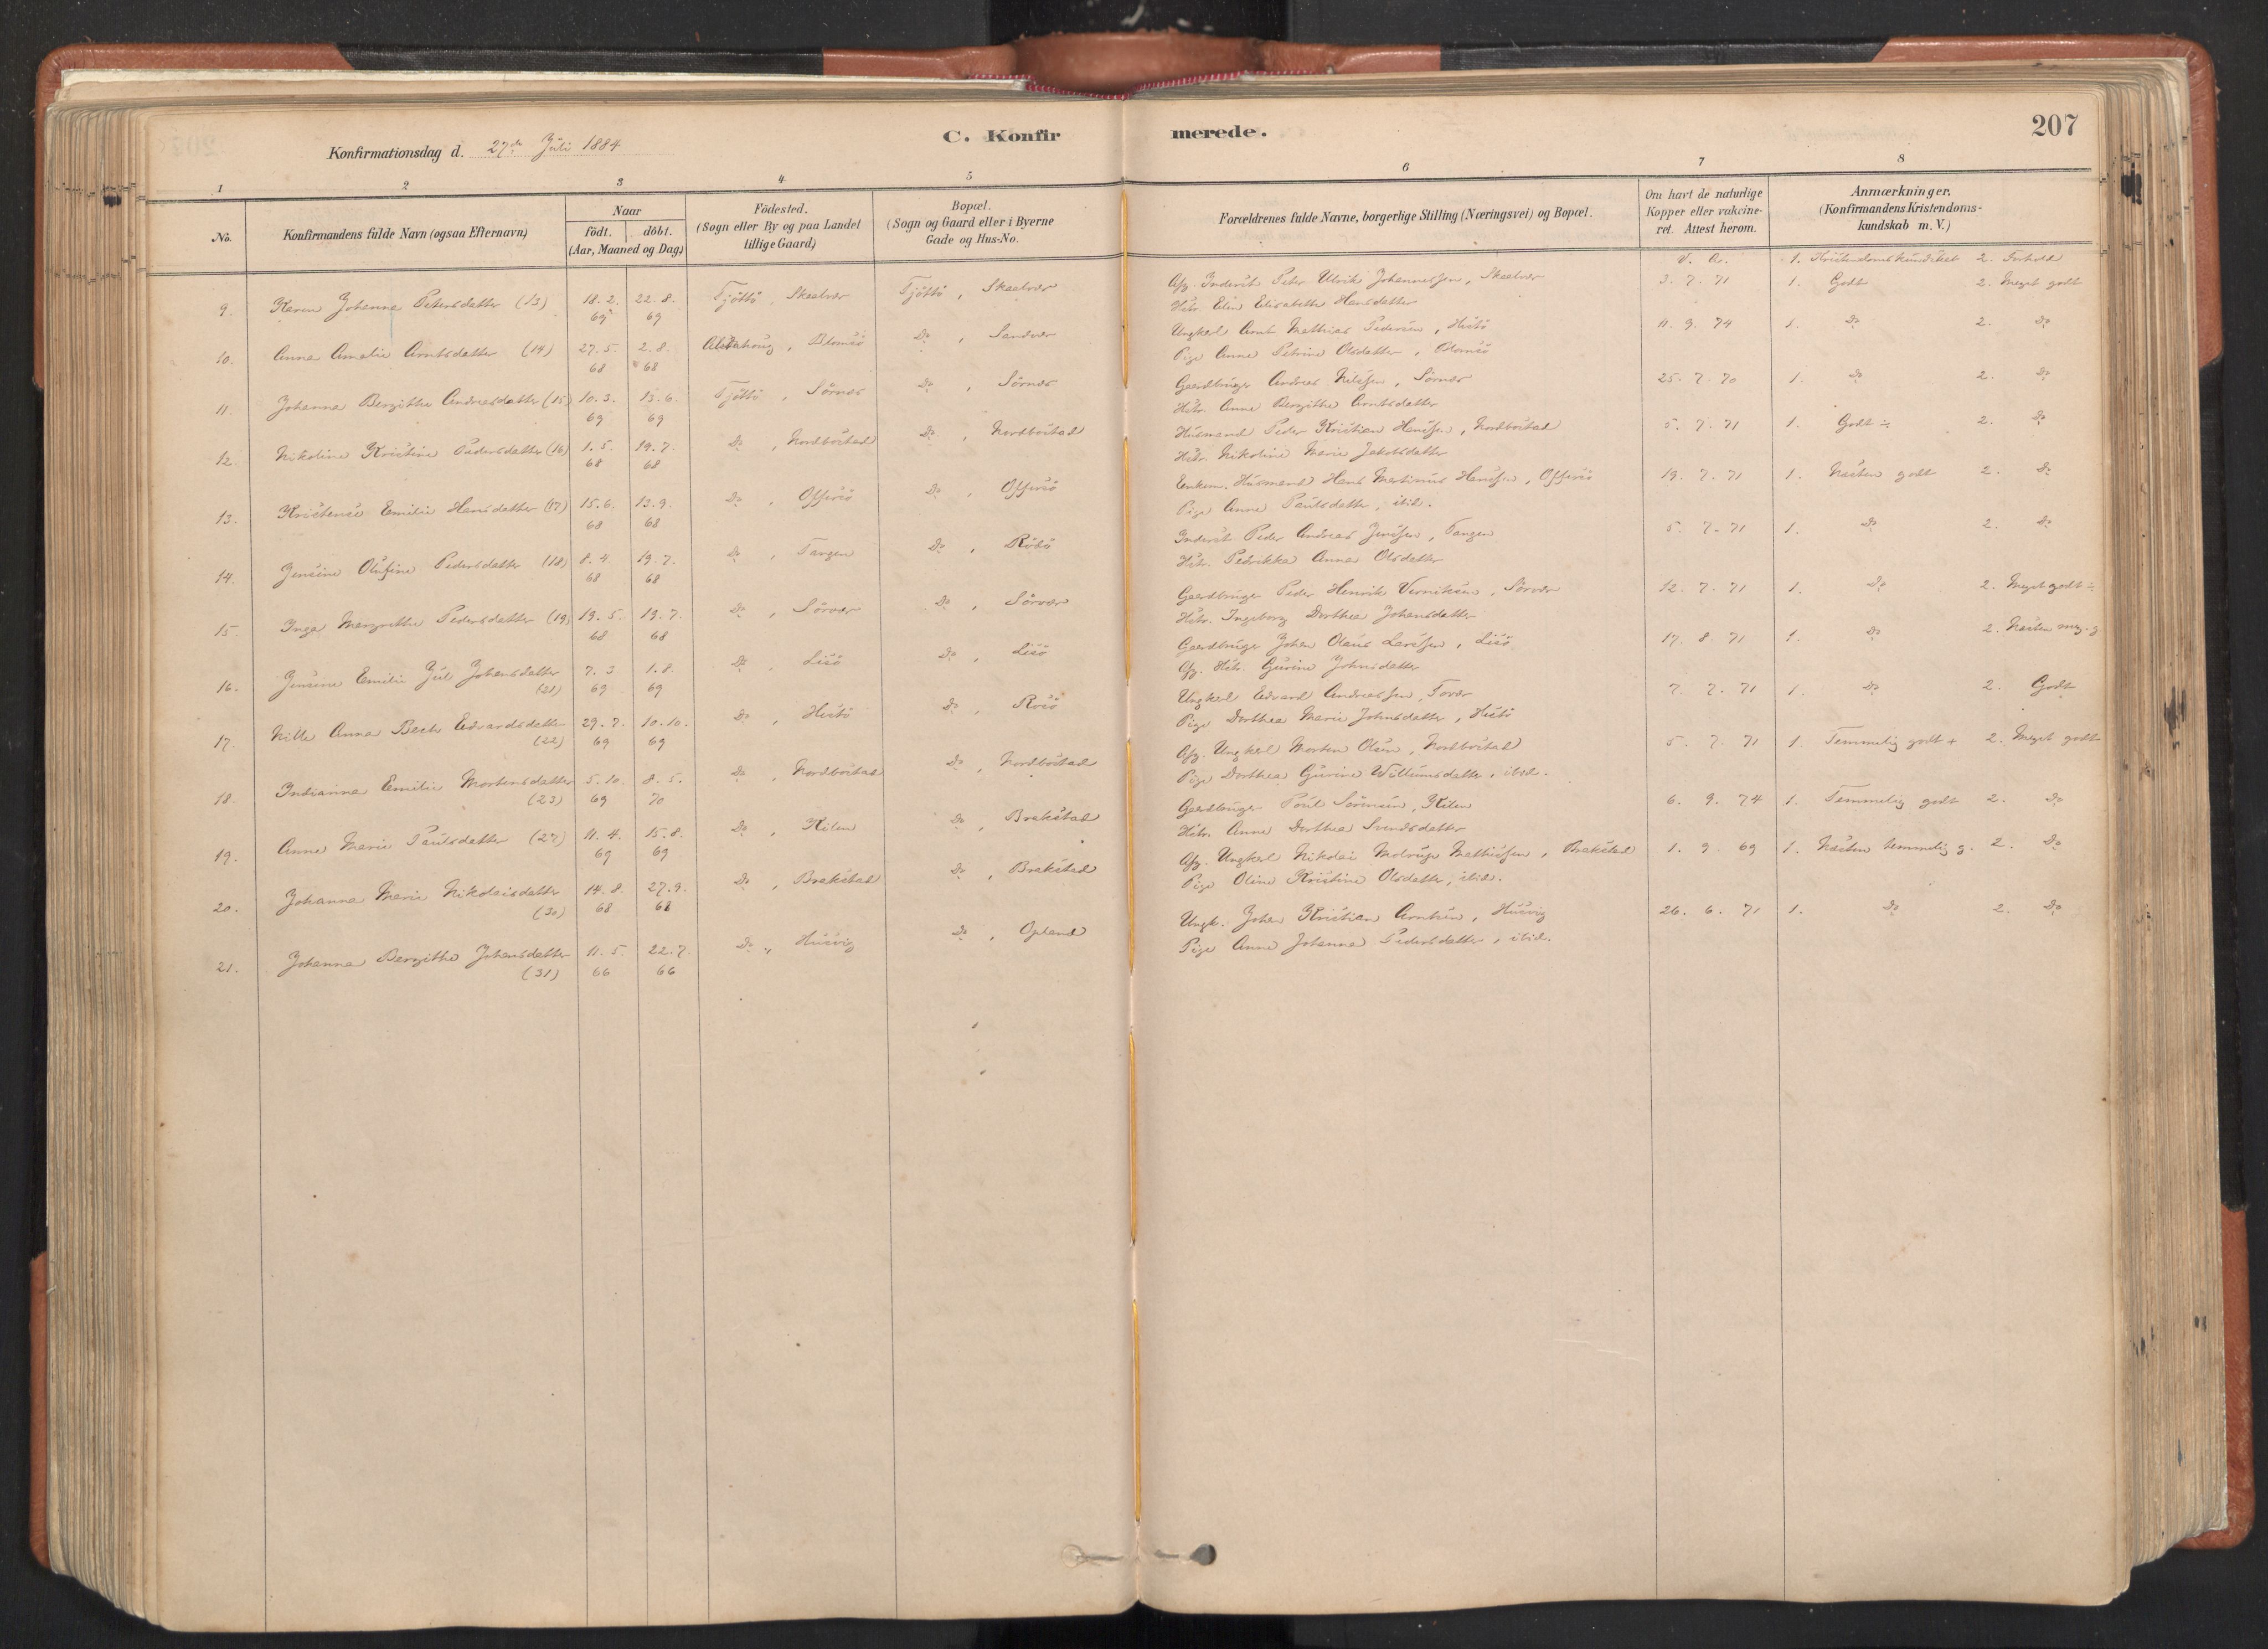 207
C. Konfirmerede.
Konfirmationsdag d. 27de Juli 1884
1 2 3 4 5 6 7 8
No.
Konfirmandens fulde Navn (ogsaa Efternavn)
Naar
födt. döbt.
(Aar, Maaned og Dag)
Födested.
(Sogn eller By og paa Landet
tillige Gaard)
Bopæl.
(Sogn og Gaard eller i Byerne
Gade og Hus-No.
Forældrenes fulde Navne, borgerlige Stilling (Næringsvei) og Bopæl.
Om havt de naturlige
Kopper eller vakcine-
ret. Attest herom.
Anmærkninger.
(Konfirmandens Kristendoms-
kundskab m. V.)
V. A. 1. Kristendomskundskab 2. Forhold
9. Karen Johanna Petersdatter (13) 18. 2. 69 22. 8. 69 Tjöttö, Skaalvær Tjöttö, Skaalvær
Afg. Inderst Peter Ulrik Johannessen, Skaalvær 3. 7. 71 1. Godt 2. Meget godt
Hstr. Elen Elisabeth Hansdatter
10. Anna Amalie Arntsdatter (14) 27. 5. 68 2. 8. 68 Alstahoug, Blomsö Do, Sandvær
Ungkarl Arnt Mathias Pedersen, Hestö 11. 9. 74 1. Do 2. Do
Pige Anne Petrine Olsdatter, Blomsö
11. Johanna Bergithe Andreasdatter (15) 10. 3. 69 13. 6. 69 Tjöttö, Sörnes Do, Sörnes
Gaardbruger Andreas Nilssen, Sörnes 25. 7. 70 1. Do 2. Do
Hstr. Anne Bergithe Arntsdatter
12. Nikoline Kristine Pedersdatter (16) 1. 5. 68 19. 7. 68 Do, Nordbostad Do, Nordbostad
Husmand Peder Kristian Hanssen, Nordbostad 5. 7. 71 1. Godt ÷ 2. Do
Hstr. Nikoline Marie Jakobsdatter
13. Kristense Emilie Hansdatter (17) 15. 6. 68 13. 9. 68 Do, Offersö Do, Offersö
Enkem. Husmand Hans Martinus Hanssen, Offersö 19. 7. 71 1. Næsten godt 2. Do
Pige Anne Paulsdatter, ibid.
14. Jensine Olufine Pedersdatter (18) 8. 4 68 19. 7. 68 Do, Tangen Do, Rösö
Inderst Peder Andreas Jenssen, Tangen 5. 7. 71 1. Do 2. Do
Hstr. Pedrikka Anna Olsdatter
15. Inga Margrethe Pedersdatter (19) 19. 5. 68 19. 7. 68 Do, Sörvær Do, Sörvær
Gaardbruger Peder Henrik Verniksen, Sörvær 12. 7. 71 1. Do 2. Meget godt ÷
Hstr. Ingeborg Dorthea Johansdatter
16. Jensine Emilie Jul Johansdatter (21) 7. 3 69 1. 8. 69 Do, Lisö Do, Lisö
Gaardbruger Johan Olaus Larssen, Lisö 17. 8. 71 1. Do 2. Næsten meg. g
Afg. Hstr. Gurine Johnsdatter
17. Nille Anna Bech Edvardsdatter (22) 29. 7. 69 10. 10. 69 Do, Hestö Do, Rosö
Ungkarl Edvard Andreassen, Tovær 7. 7. 71 1. Do 2. Godt
Pige Dorthea Marie Johnsdatter, Hestö
18. Indianna Emilie Mortensdatter (23) 5. 10. 69 8. 5. 70 Do, Nordbostad Do, Nordbostad
Afg. Ungkarl Morten Olsen, Nordbostad 5. 7. 71 1. Temmelig godt + 2. Meget godt
Pige Dorthea Gurine Willumsdatter, ibid.
19. Anne Marie Paulsdatter (27) 11. 4. 69 15. 8. 69 Do, Kilen Do, Brakstad
Gaardbruger Paul Sörensen, Kilen 6. 9. 74 1. Temmelig godt 2. Do
Hstr. Anne Dorthea Svendsdatter
20. Johanna Marie Nikolaisdatter (30) 14. 8. 68 27. 9. 68 Do, Brakstad Do, Brakstad
Afg. Ungkarl Nikolai Molrup Mathissen, Brakstad 1. 9. 69 1. Næsten temmelig g. 2. Do
Pige Oline Kristine Olsdatter, ibid.
21. Johanna Bergithe Johansdatter (31) 11. 5. 66 22. 7. 66 Do, Husvig Do, Opland
Ungk. Johan Kristian Arntsen, Husvig 26. 6. 71 1. Do 2. Do
Pige Anne Johanna Pedersdatter, ibid.